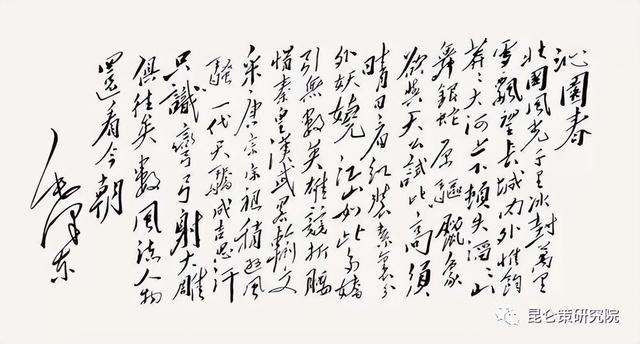 沁園春
北國風光千里冰封萬里
雪飄望長城内外惟餘
莽々大河上下頓失滔々山
舞銀蛇原驅臘象
欲與天公試比高須
晴日看紅裝素裹分
外妖嬈江山如此多嬌
引無數英雄競折腰
惜秦皇漢武畧輸文
采唐宗宋祖稍遜風
騷一代天驕成吉思汗
只識彎弓射大雕
俱往矣數風流人物
還看今朝
毛澤東
昆仑策研究院